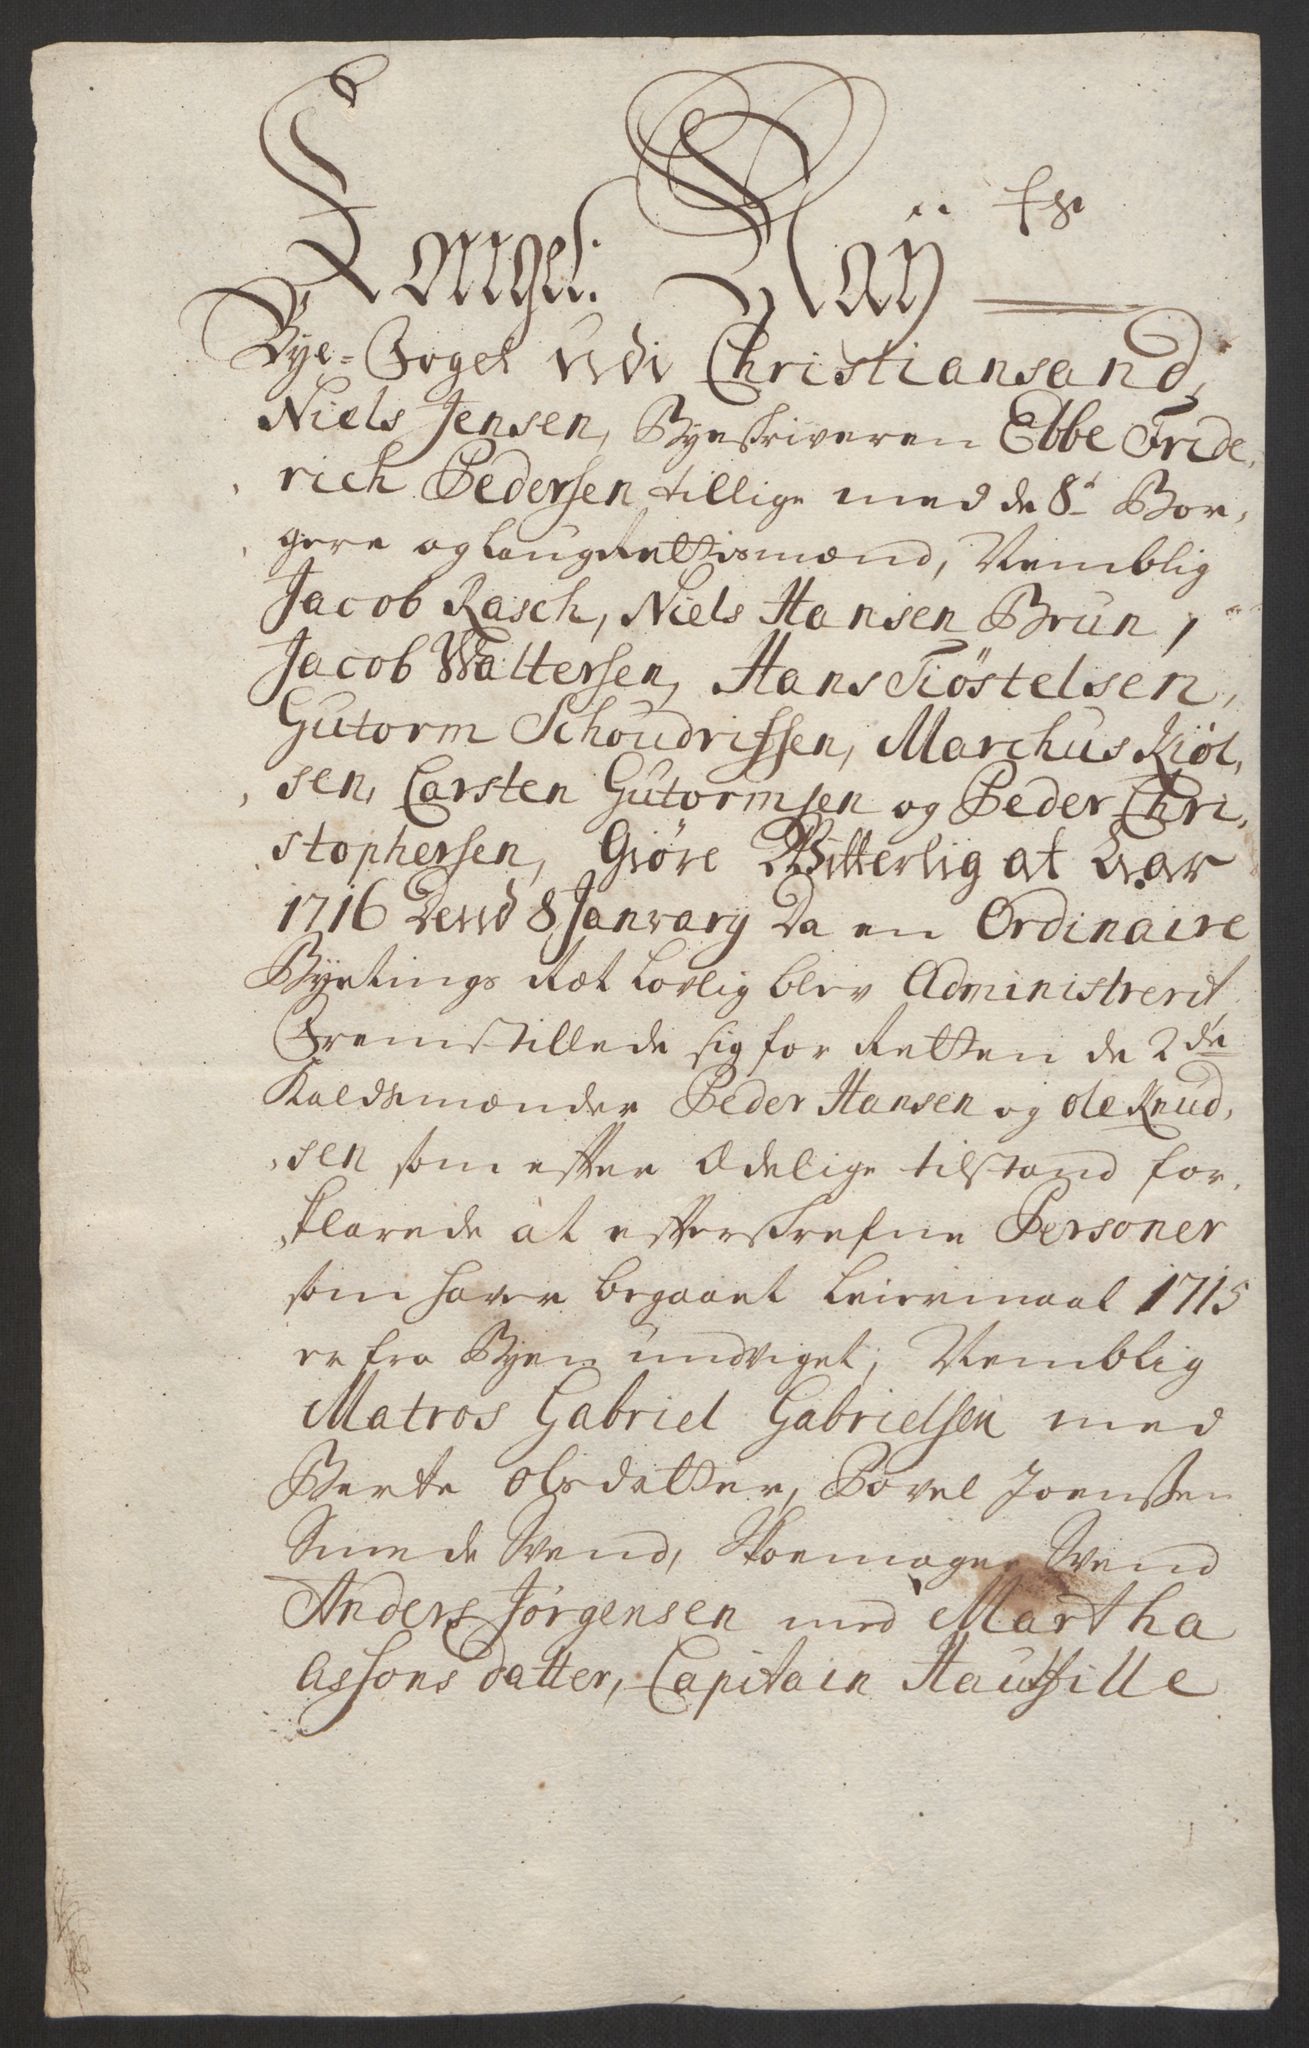 Kongel: Maÿ
Bye-Foget udi Christiansand,
Niels Jensen, Byeskriveren Ebbe Fride-
rich Pedersen tillige med de 8te Bor-
gere og LaugRettismænd, Nemblig
Jacob Rasch, Niels Hansen Brun,
Jacob Waltersen, Hans Tiöstelsen,
Gutorm Schoudrissen, Marchus Kiöl-
sen, Carsten Gutormsen og Peder Chri-
stophersen, Giöre Witterlig at Aar
1716 Dend 8 January Da en Ordinaire
Byetings Ræt Lovlig blev Administrerit
Fremstillede sig for Retten de 2de
Kaldsmænder Peder Hansen og Ole Knud-
sen som efter Edelige tilstand for-
klarede at efterskrefne Personer
som haver begaaet Leiermaal 1715
er fra Byen undviget, Nemblig
Matros Gabriel Gabrielsen med
Berte Olsdatter, Povel Joenssen
Smede Svend, Skoemager Svend
Anders Jörgensen med Martha
Assons datter, Capitain